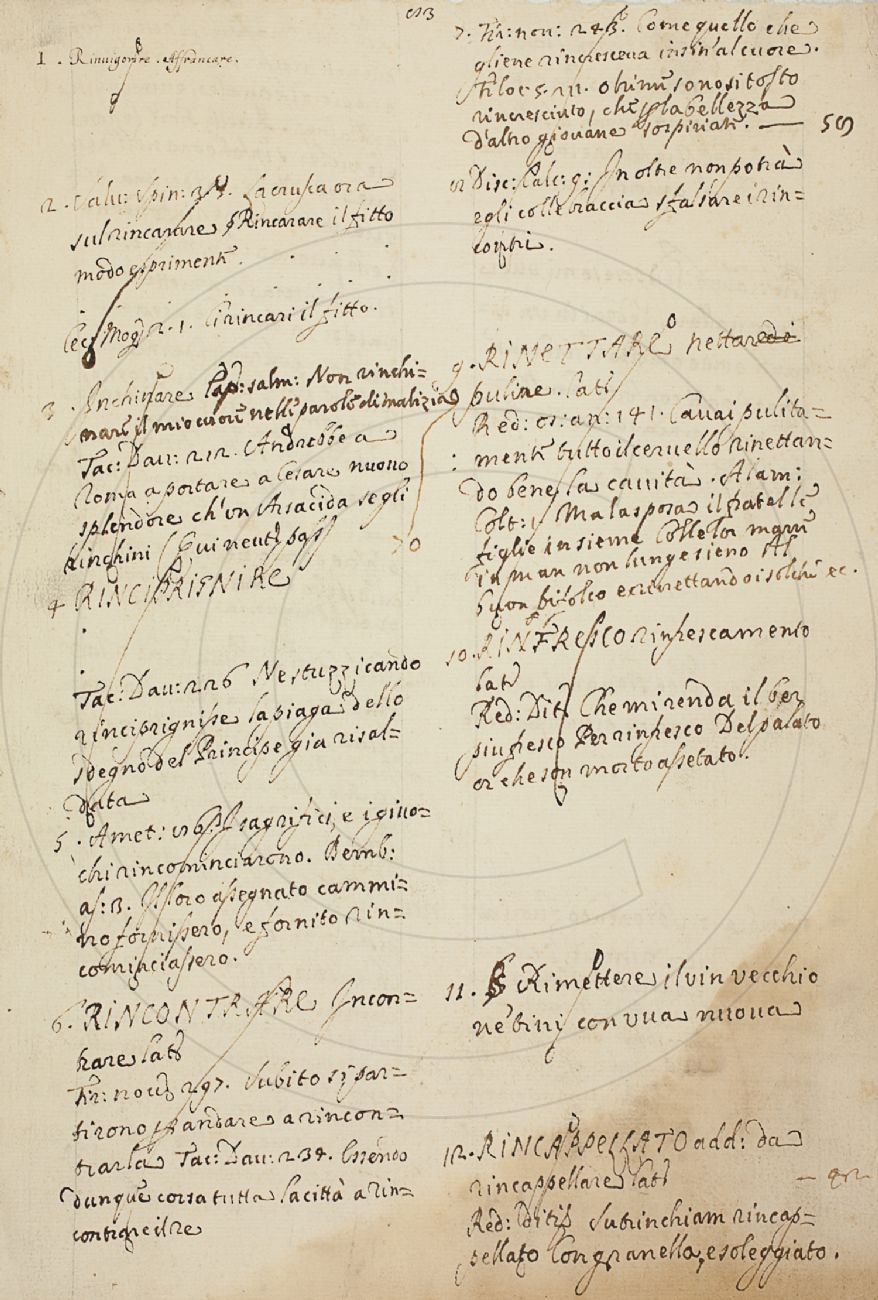 1. Rinuigorire. Affrancare.
2. Salu: Spin: La crusca ora
sul rincarare § Rincarare il fitto
modo esprimente.
Cec: Mogl: 2. 1. Ci rincari il fitto.
3. Inchinare Cap: salm: Non rinchi=
nare il mio cuore nelle parole di malizia
Tac: Dau: 212. Andrebbe a
Roma a portare a Cesare nuouo
splendore ch'un Arsacida se gli
Rinchini (Qui neut: pass
70
4 RINCIPRIGNIRE
Tac: Dau: 226 Ne stuzzicando
rinciprignisse la piaga dello
sdegno del Principe gia risal=
data
5. Amet: I sagrifici, e i giuo=
chi rincominciarono. Bemb:
as: 3. assegnato cammi=
no fornissero, e fornito rin=
cominciassero.
6. RINCONTRARE Incon=
trare lat:
Fir: nou: 297. Subito si par=
tirono p andare a rincon=
trarla Tac: Dau: 234. Essendo
dunque corsa tutta la città a rin=
contrare il re
7. Fir: nou: 243. Come quello che
gliene rincresceua insin' al cuore.
Filoc: 5. 211. Ohime sonosi tosto
rincresciuto, che p la bellezza
d'altro giouane sospiriate. — 59
Disc: Calc: 9: In oltre non potrà
egli colle braccia sfalsare i rin=
contri.
9. RINETTARE nettare di
puline. lat:
Red: os: an: 141. Cauai pulita=
mente tutto il ceruello rinettan=
do bene la cauità. Alam:
Colt: 1. Mal asposa il fratello
figlie insieme Colle lor
in man non lunge sieno Al
buon bifolco e rinettando i solchi ec.
10. RINFRESCO rinfrescamento
lat:
Red: Dit: Che mi renda il ber
piu fresco Per rinfresco Del palato
or che son morto assetato.
11. § Rimettere il vin vecchio
ne tini con vua nuoua
12. RINCAPPELLATO add: da
rincappellare lat:
Red: Ditir Subrinchiam rincap=
pellato Con granella, e soleggiato.